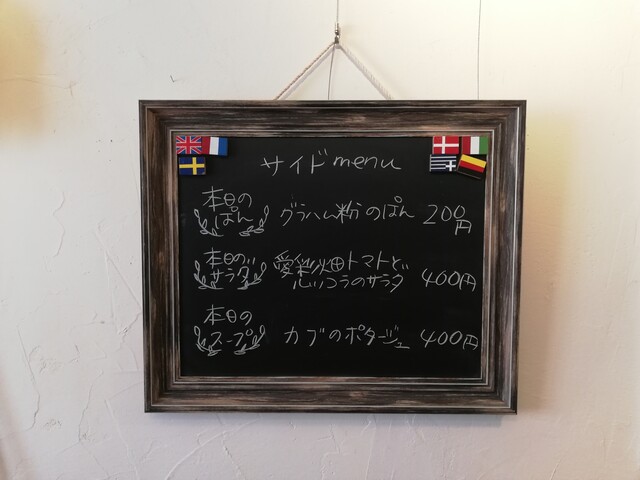 サイドmenu
本日の
ぱん
グラハム粉のぱん
200
円
本日の
サラダ
愛彩畑トマトと
ルッコラのサラダ
400円
本日の
スープ
カブのポタージュ
400円